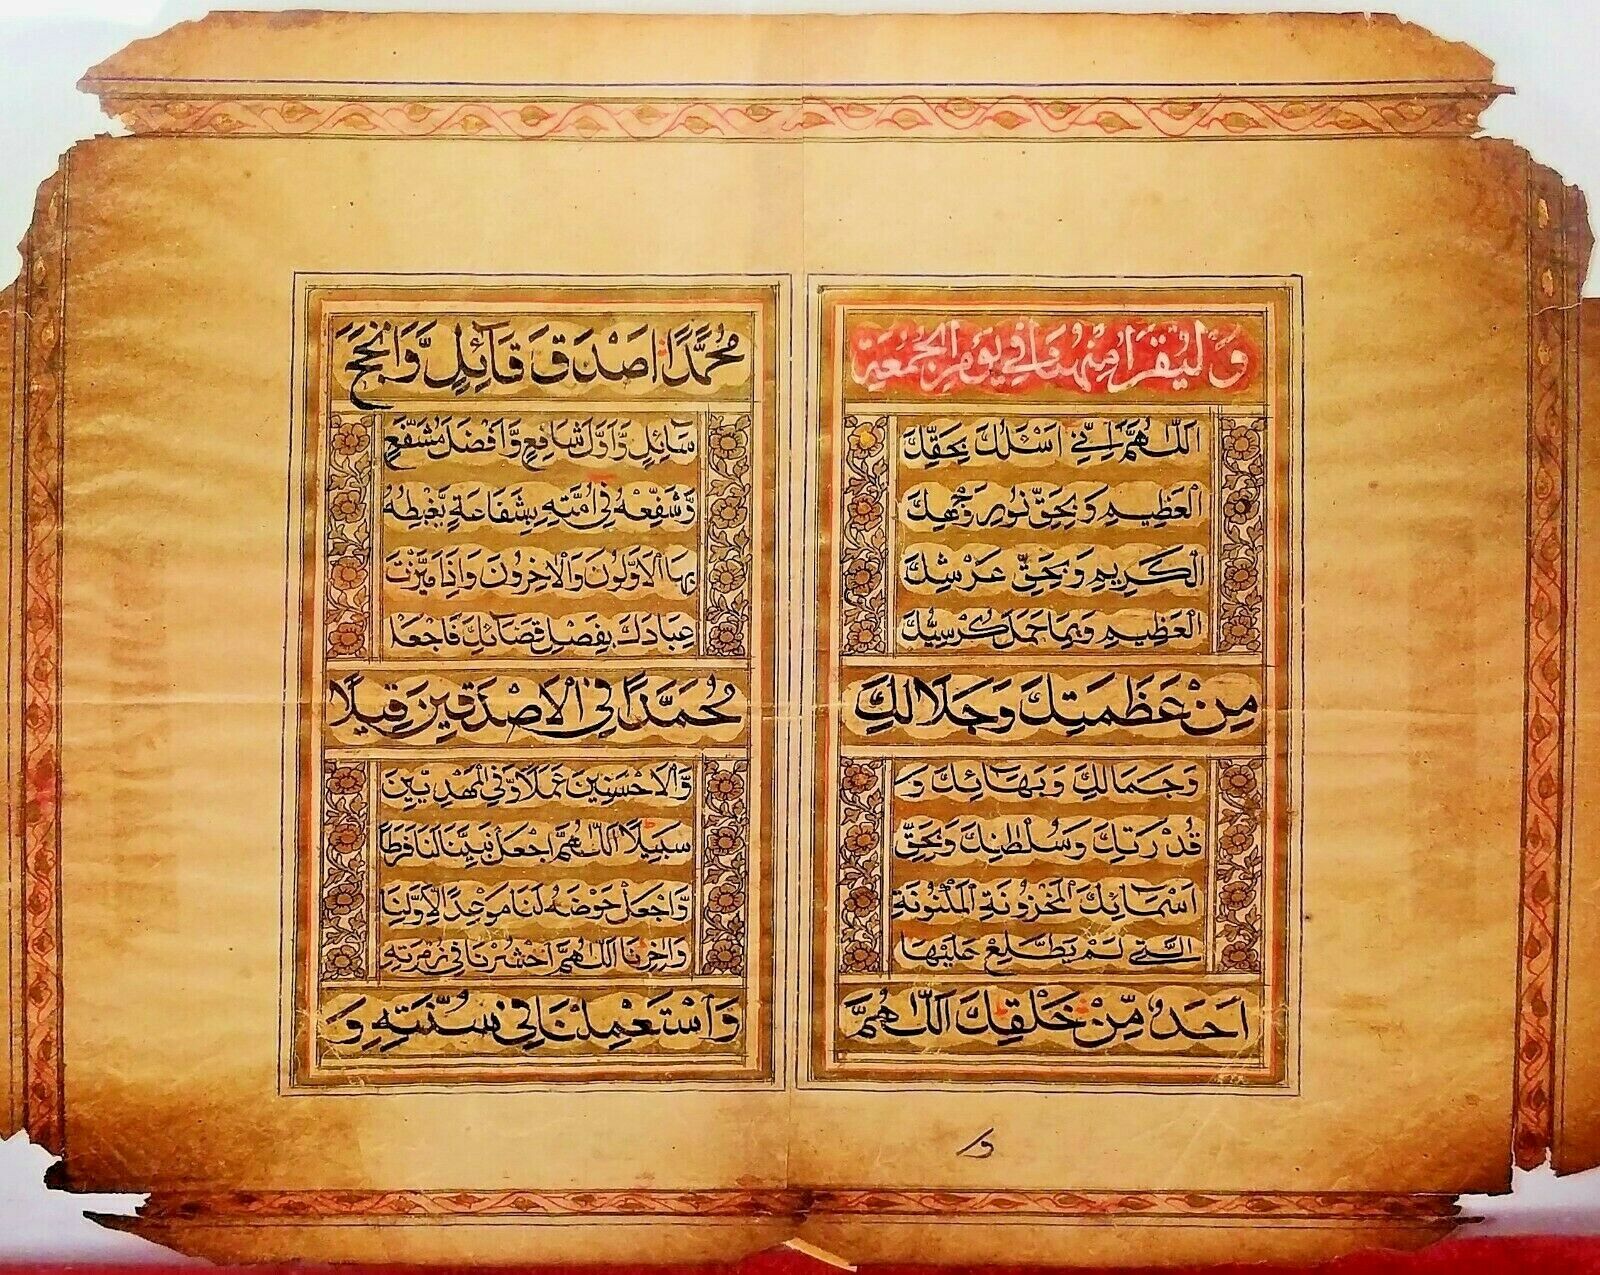 وَلْيُقْرَأ مِنْهُنَا فِي يَوْمِ الْجُمُعَةِ
اَللّٰهُمَّ اِنِّي اَسْئَلُكَ بِحَقِّكَ
الْعَظِيمِ وَبِحَقِّ نُورِ وَجْهِكَ
الْكَرِيمِ وَبِحَقِّ عَرْشِكَ
الْعَظِيمِ وَبِمَا حَمَلَ كُرْسِيُّكَ
مِنْ عَظَمَتِكَ وَجَلَالِكَ
وَجَمَالِكَ وَبَهَائِكَ وَ
قُدْرَتِكَ وَسُلْطٰنِكَ وَبِحَقِّ
اَسْمَائِكَ الْمَخْزُونَةِ الْمَكْنُونَةِ
الَّتِي لَمْ يَطَّلِعْ عَلَيْهَا
اَحَدٌ مِّنْ خَلْقِكَ اَللّٰهُمَّ
و
مُحَمَّدًا اَصْدَقَ قَائِلٍ وَّاَنْجَحَ
سَائِلٍ وَّاَوَّلَ شَافِعٍ وَّاَفْضَلَ مُشَفَّعٍ
وَّشَفِّعْهُ فِي اُمَّتِهِ بِشَفَاعَةٍ يَّغْبِطُهُ
بِهَا الْاَوَّلُونَ وَالْاٰخِرُونَ وَاِذَا مَيَّزْتَ
عِبَادَكَ بِفَصْلِ قَضَائِكَ فَاجْعَلْ
مُحَمَّدًا فِي الْاَصْدَقِينَ قِيلًا
وَّالْاَحْسَنِينَ عَمَلًا وَّفِي الْمَهْدِيِّينَ
سَبِيلًا اَللّٰهُمَّ اجْعَلْ نَبِيَّنَا لَنَا فَرَطًا
وَّاجْعَلْ حَوْضَهُ لَنَا مَوْعِدًا لِاَوَّلِنَا
وَاٰخِرِنَا اَللّٰهُمَّ احْشُرْنَا فِي زُمْرَتِهِ
وَاسْتَعْمِلْنَا فِي سُنَّتِهِ وَ